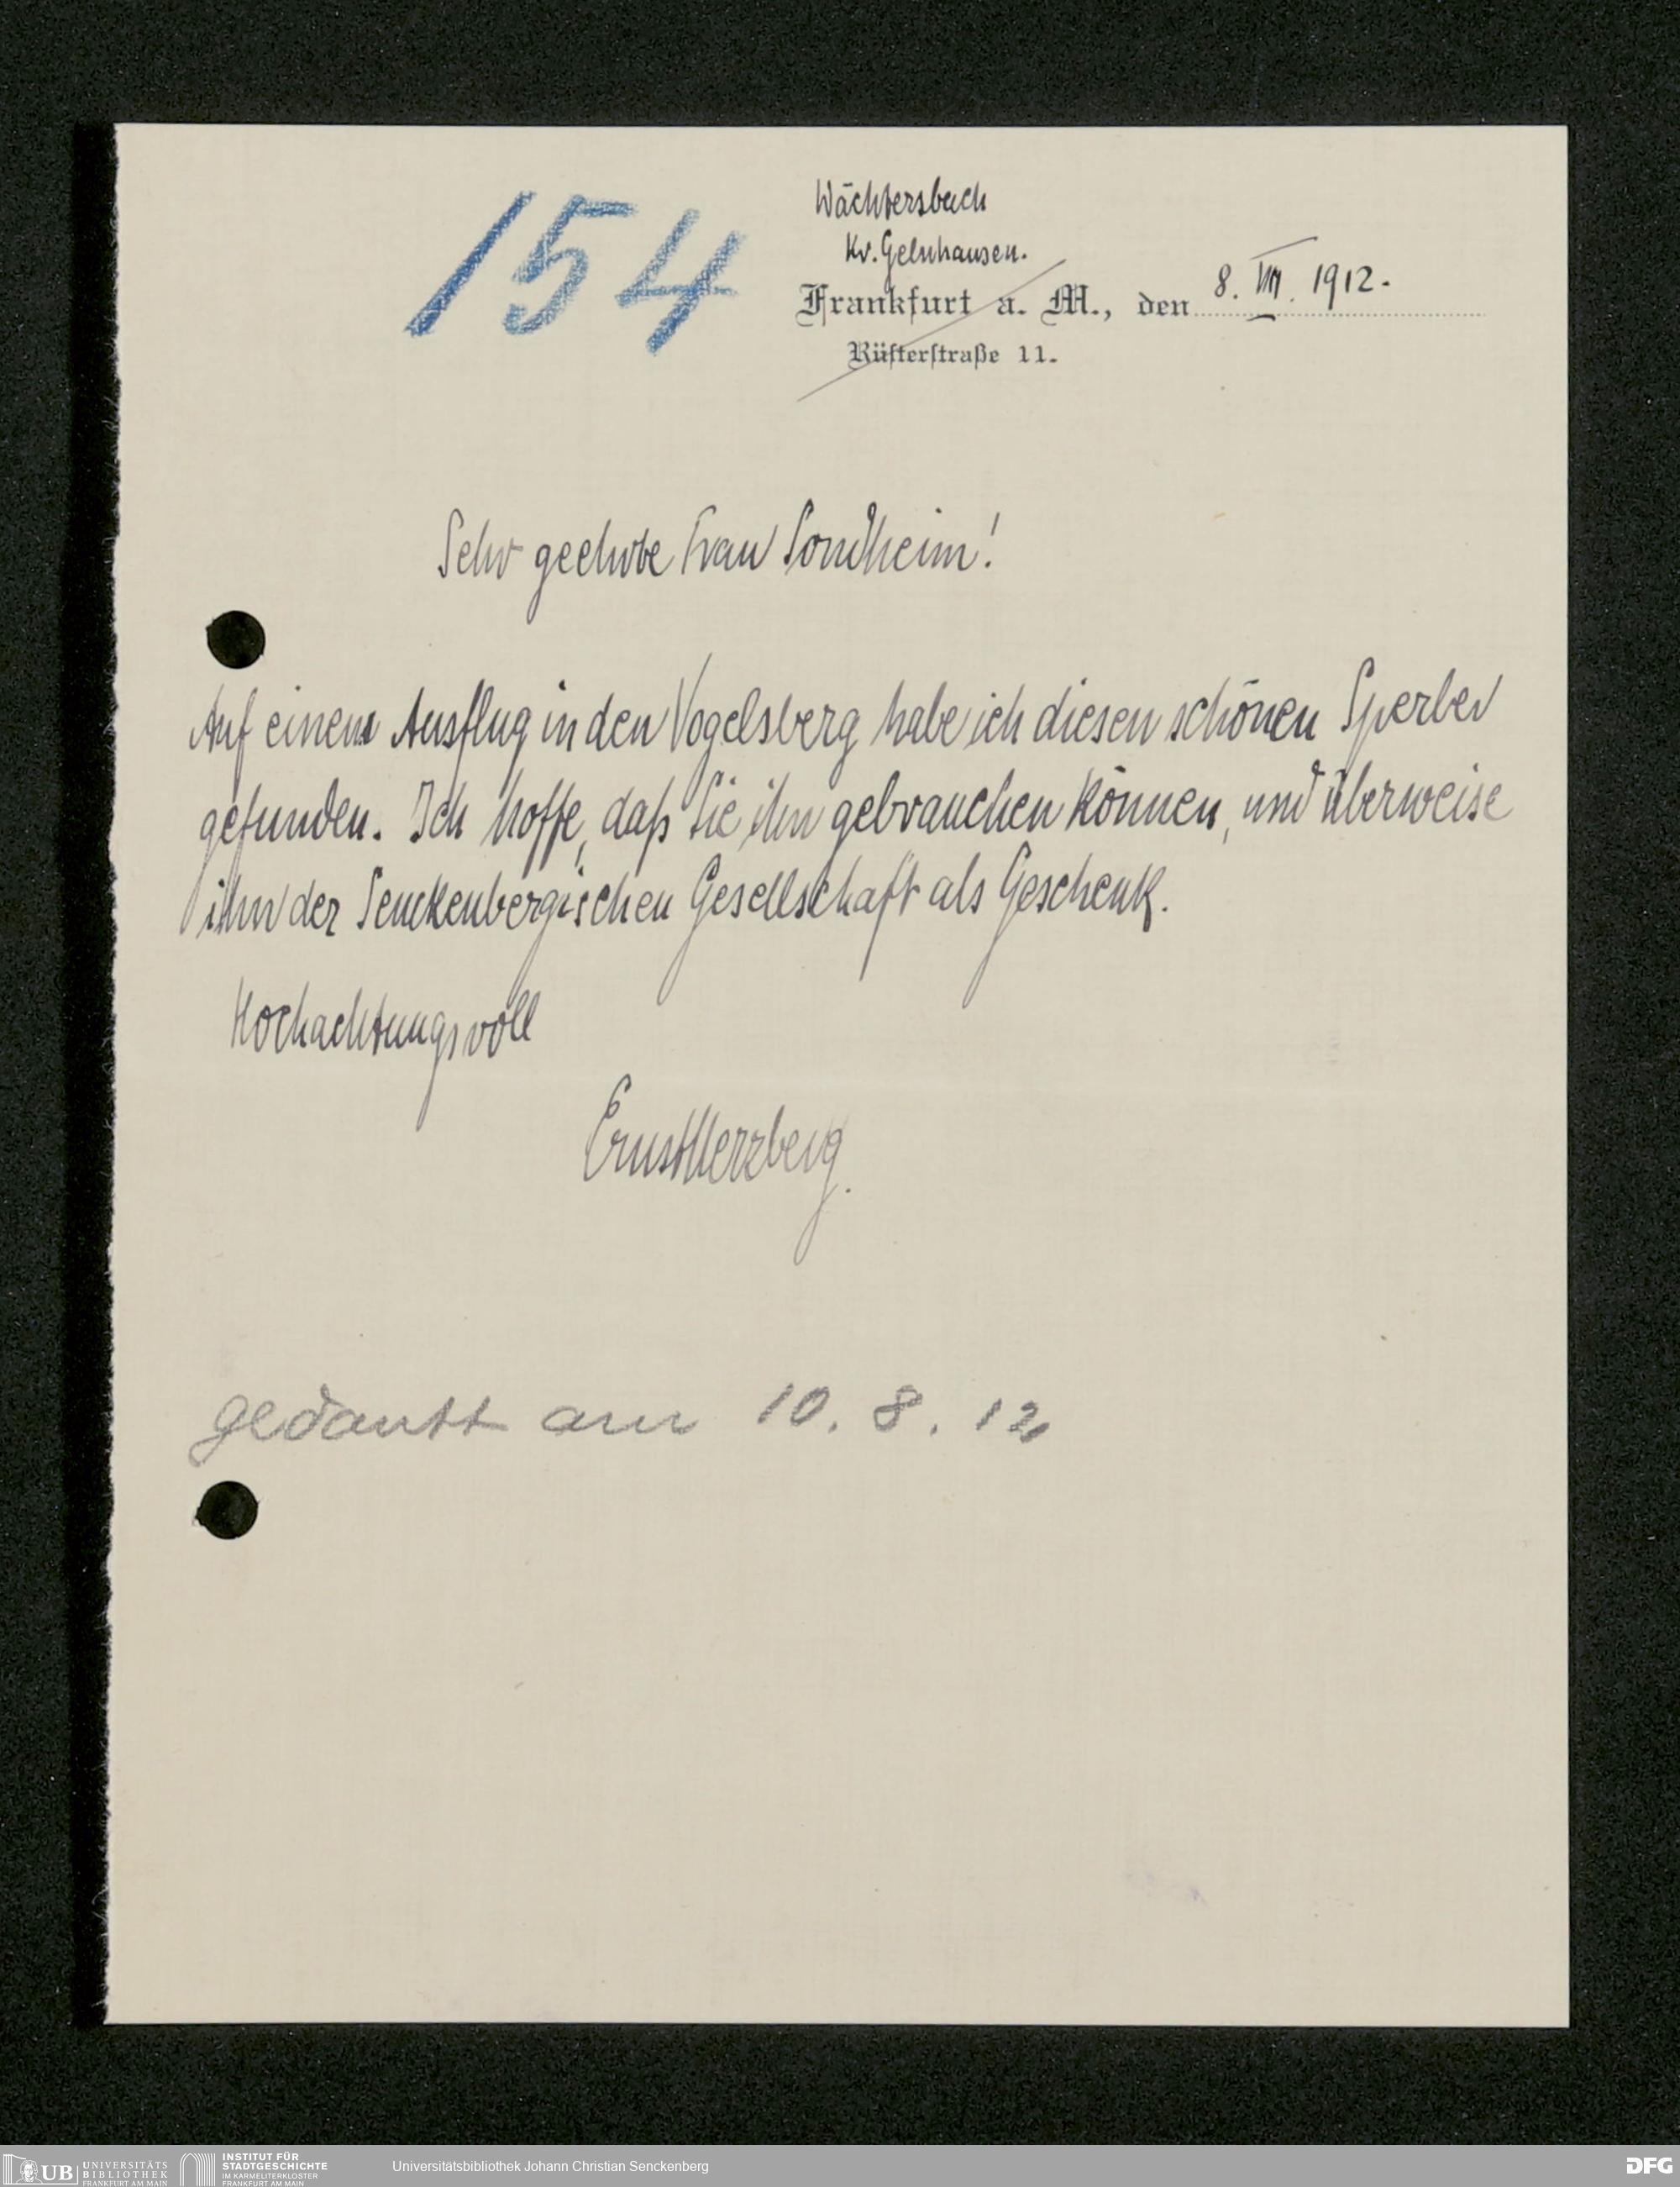 154
Wächtersbach
Kr. Gelnhausen.
Frankfurt a. M., den 8. VIII. 1912.
Rüsterstraße 11.
Sehr geehrte Frau Sondheim!
Auf einem Ausflug in den Vogelsberg habe ich diesen schönen Sperber
gefunden. Ich hoffe, daß Sie ihn gebrauchen können, und überweise
ihn der Senckenbergischen Gesellschaft als Geschenk.
Hochachtungsvoll
Ernst Herzberg.
gedankt am 10. 8. 12
UB UNIVERSITÄTS BIBLIOTHEK FRANKFURT AM MAIN
INSTITUT FÜR STADTGESCHICHTE IM KARMELITERKLOSTER FRANKFURT AM MAIN
Universitätsbibliothek Johann Christian Senckenberg
DFG